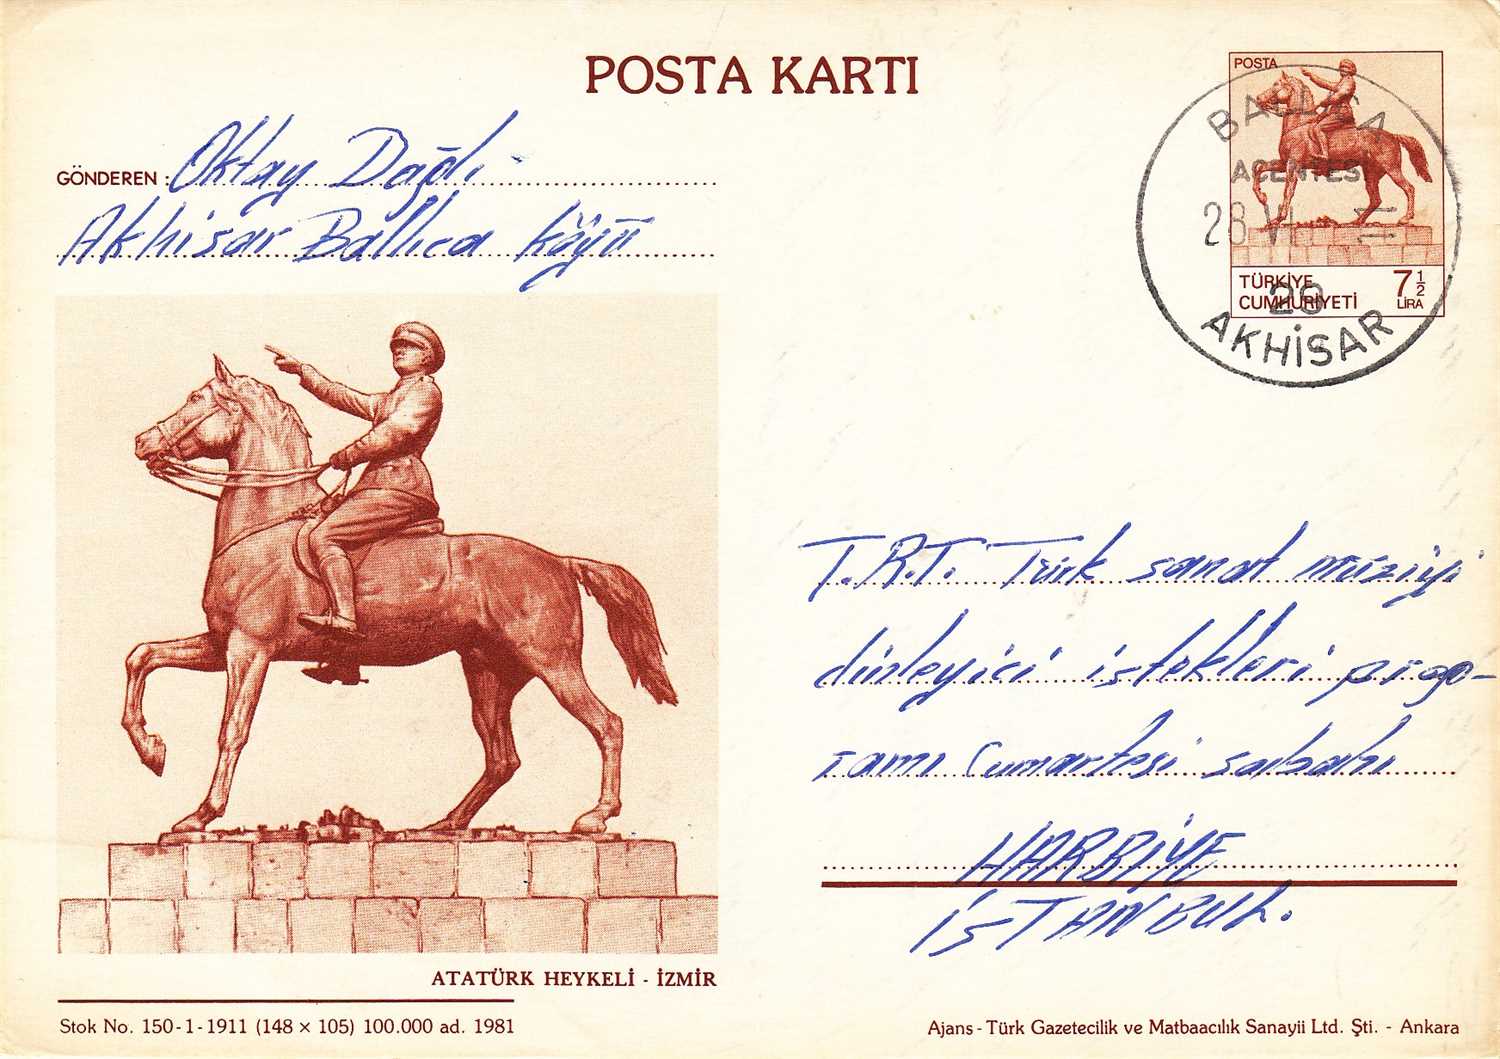 POSTA KARTI
GÖNDEREN : Oktay Dağlı
Akhisar Ballıca köyü
POSTA
BALLICA
ACENTESİ
28 VI
29
AKHİSAR
TÜRKİYE
CUMHURİYETİ
7 1/2
LİRA
T.R.T. Türk sanat müziyi
dinleyici istekleri prog-
ramı Cumartesi sabahı
HARBİYE
İSTANBUL.
ATATÜRK HEYKELİ - İZMİR
Stok No. 150-1-1911 (148 x 105) 100.000 ad. 1981
Ajans-Türk Gazetecilik ve Matbaacılık Sanayii Ltd. Şti. - Ankara